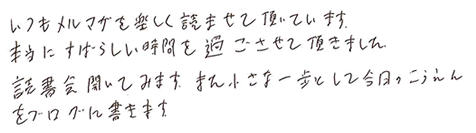 いつもメルマガを楽しく読ませて頂いています。
本当にすばらしい時間を過ごさせて頂きました。
読書会開いてみます。また小さな一歩として今日のこうえん
をブログに書きます。